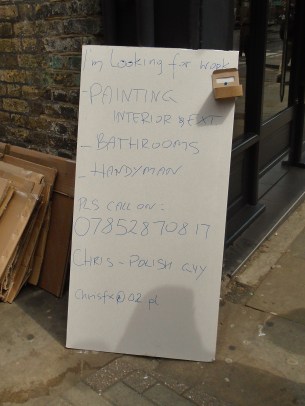 I'm Looking for work
- PAINTING
INTERIOR & EXT
- BATHROOMS
- HANDYMAN
PLS CALL ON:
07852870817
CHRIS - POLISH GUY